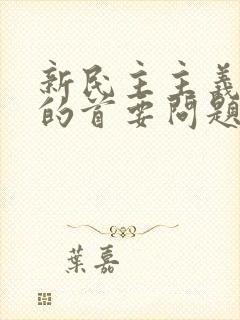 新民主主義
的首要問題
葉嘉